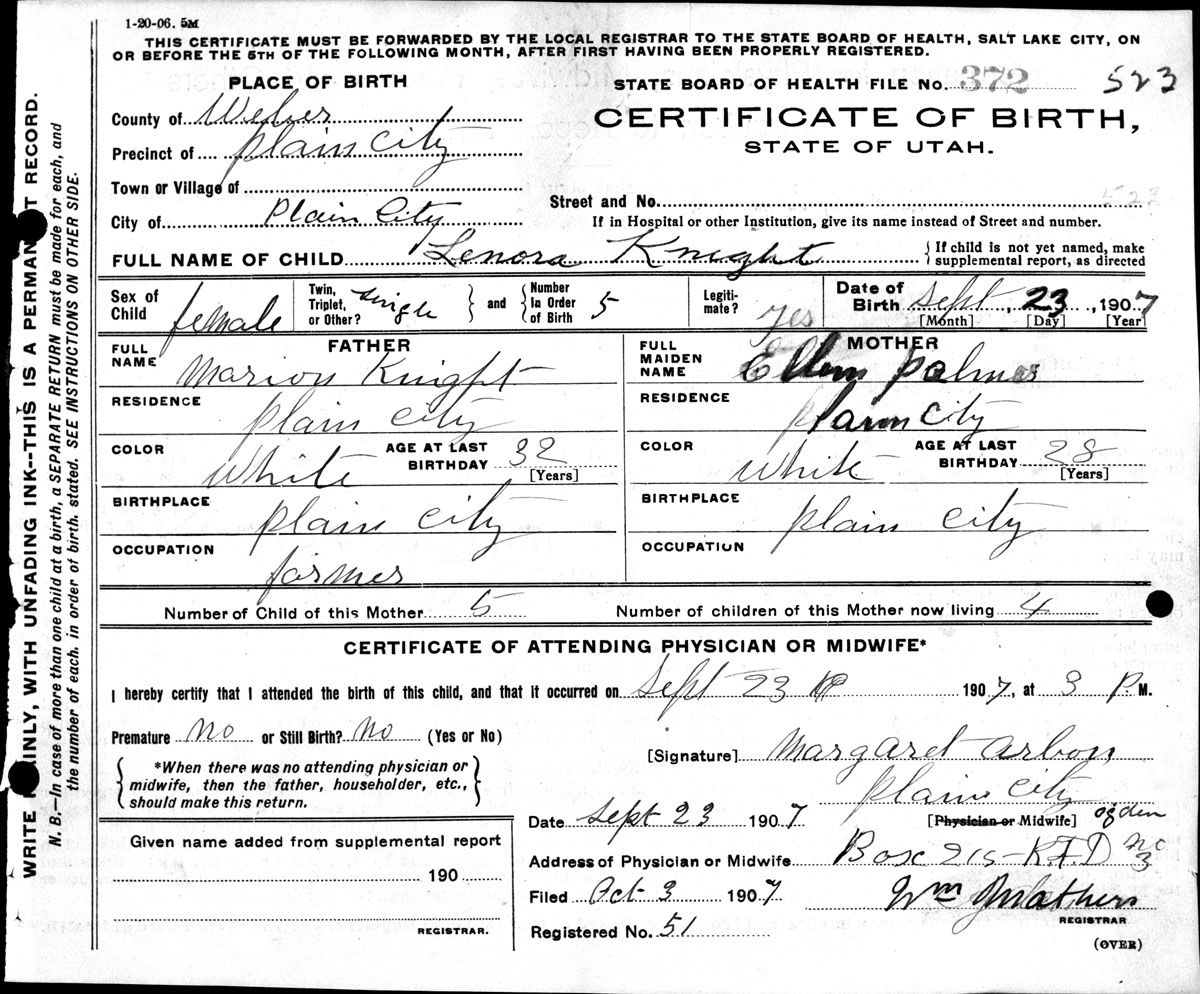 1-20-06. 5M
THIS CERTIFICATE MUST BE FORWARDED BY THE LOCAL REGISTRAR TO THE STATE BOARD OF HEALTH, SALT LAKE CITY, ON
OR BEFORE THE 5TH OF THE FOLLOWING MONTH, AFTER FIRST HAVING BEEN PROPERLY REGISTERED.
PLACE OF BIRTH
STATE BOARD OF HEALTH FILE No. 372 523
County of Weber
CERTIFICATE OF BIRTH,
Precinct of plain city
STATE OF UTAH.
Town or Village of
Street and No. 523
City of Plain City
If in Hospital or other Institution, give its name instead of Street and number.
FULL NAME OF CHILD Lenora Knight
{If child is not yet named, make
supplemental report, as directed
Sex of Child female
Twin, Triplet, or Other? single } and { Number In Order of Birth 5
Legiti- mate? yes
Date of Birth Sept, 23, 1907
[Month] [Day] [Year]
FATHER
FULL NAME Marion Knight
RESIDENCE plain city
COLOR White AGE AT LAST BIRTHDAY 32
[Years]
BIRTHPLACE plain city
OCCUPATION farmer
MOTHER
FULL MAIDEN NAME Ellen palmer
RESIDENCE plain city
COLOR white AGE AT LAST BIRTHDAY 28
[Years]
BIRTHPLACE plain city
OCCUPATION
Number of Child of this Mother 5 Number of children of this Mother now living 4
CERTIFICATE OF ATTENDING PHYSICIAN OR MIDWIFE*
I hereby certify that I attended the birth of this child, and that it occurred on Sept 23 1907, at 3 P.M.
Premature No or Still Birth? No (Yes or No)
[Signature] Margaret Arbon
*When there was no attending physician or
midwife, then the father, householder, etc.,
should make this return.
plain city
Date Sept 23 1907 [Physician or Midwife] ogden
Given name added from supplemental report
190
REGISTRAR.
Address of Physician or Midwife Box 215 - R.F.D No 3
Filed Oct 3 1907 Wm
REGISTRAR
Registered No. 51
(OVER)
WRITE PLAINLY, WITH UNFADING INK--THIS IS A PERMANENT RECORD.
N. B.—In case of more than one child at a birth, a SEPARATE RETURN must be made for each, and
the number of each, in order of birth, stated. SEE INSTRUCTIONS ON OTHER SIDE.